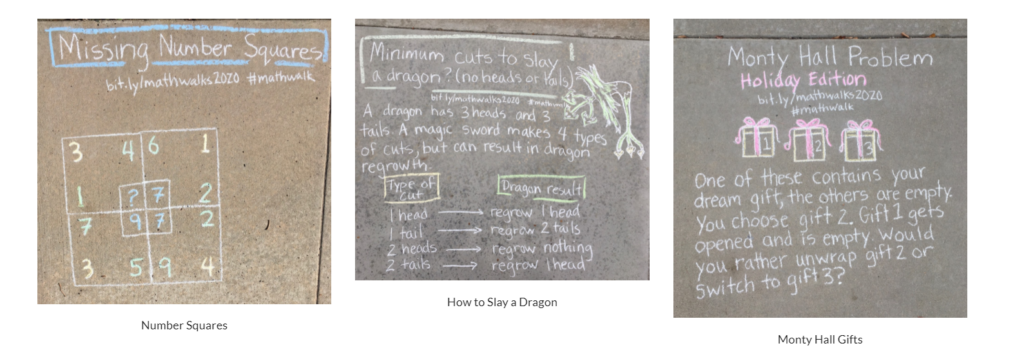 Missing Number Squares
bit.ly/mathwalks2020 #mathwalk
3 4 6 1
1 ? 7 2
7 9 7 2
3 5 9 4
Number Squares
Minimum cuts to slay
a dragon? (no heads or tails)
bit.ly/mathwalks2020
A dragon has 3 heads and 3
tails. A magic sword makes 4 types
of cuts, but can result in dragon
regrowth.
Type of cut
Dragon result
1 head → regrow 1 head
1 tail → regrow 2 tails
2 heads → regrow nothing
2 tails → regrow 1 head
How to Slay a Dragon
Monty Hall Problem
Holiday Edition
bit.ly/mathwalks2020
#mathwalk
1 2 3
One of these contains your
dream gift, the others are empty.
You choose gift 2. Gift 1 gets
opened and is empty. Would
you rather unwrap gift 2 or
switch to gift 3?
Monty Hall Gifts